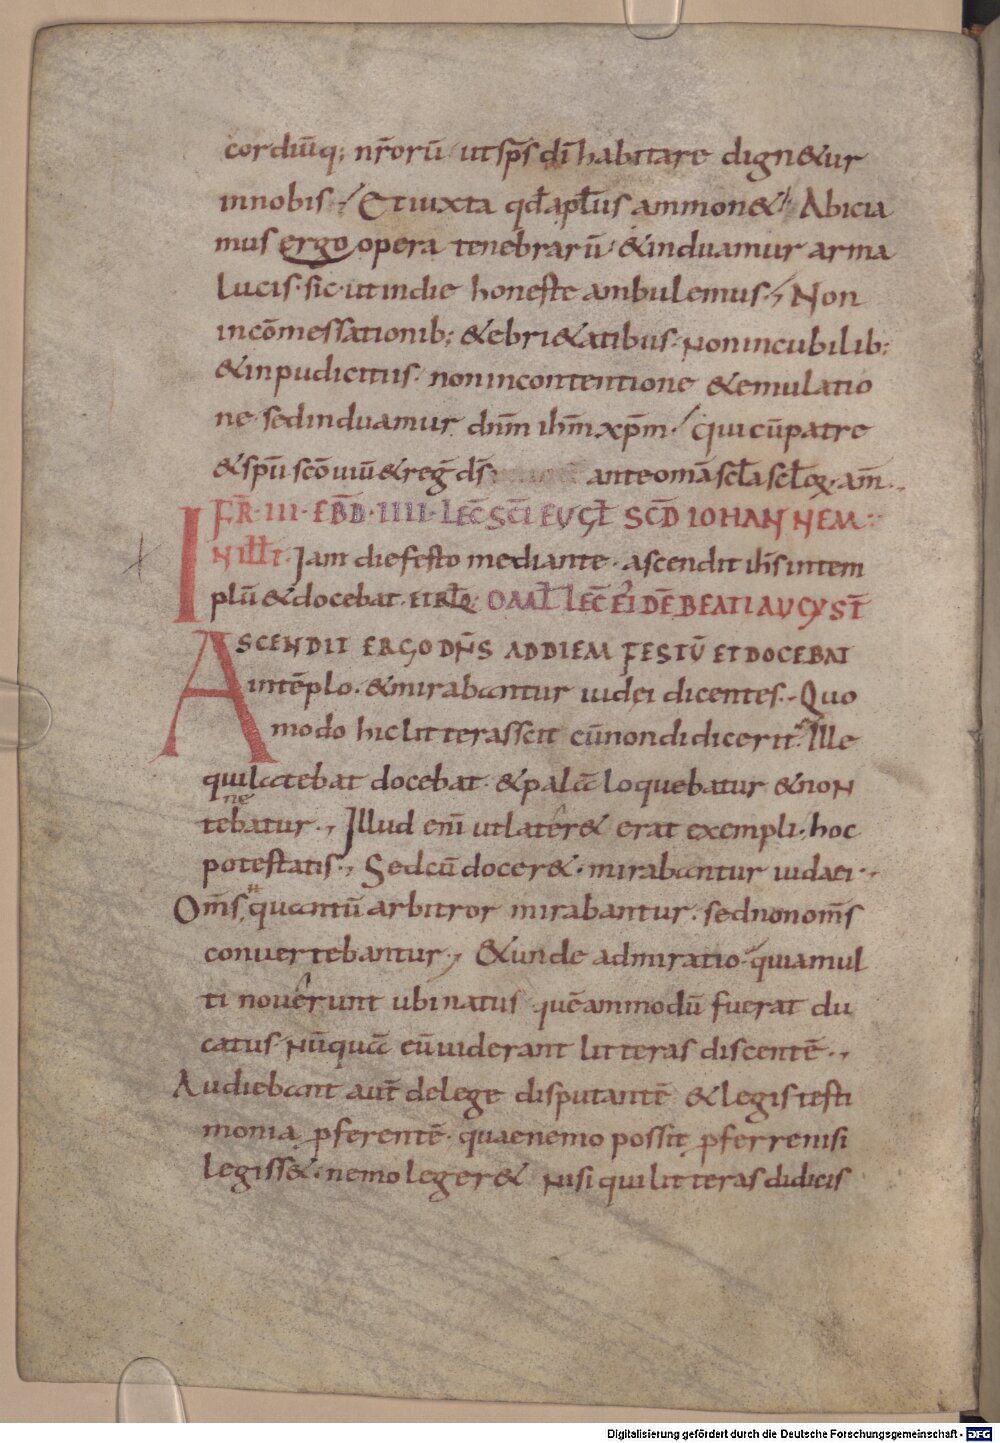 cordiūq; nr̄orū ut sp̄s dī habitare dign&ur
innobis. Et iuxta qđ apłus ammon& Abicia
mus ergo opera tenebrarū &induamur arma
lucis. sic ut in die honeste ambulemus., Non
incōmessationib; &ebri&atibus. Non incubilib;
&inpudicitiis. non incontentione &emulatio
ne. sed induamur dn̄m ih̄m xp̄m. qui cū patre
&sp̄u sc̄o uiu&̄ reḡ ds̄ ante om̄a scła scłoꝝ. am̄.
FR̄. III. EBD̄. IIII. LEC̄ SC̄I EUGŁ SCD̄ IOHANNEM
IN ILŁ T. Iam die festo mediante. ascendit ih̄s intem
plū &docebat. ET RŁQ. OMŁ LEC̄ EI DĒ BEATI AUGUST̄
ASCENDIT ERGO DN̄S AD DIEM FESTŪ ET DOCEBAT
intēplo. &mirabantur iudei dicentes. Quo
modo hic litteras scit cū non didicerit. Ille
qui latebat docebat. &palā loquebatur &non
ne
tebatur., Illud eni̅ ut later& erat exempli. hoc
potestatis., Sed cū docer&. mirabantur iudaei.,
Om̄s quantū arbitror mirabantur. sed non om̄s
conuertebantur., &unde admiratio. quia mul
ti nouerunt ubi natus quēammodū fuerat du
catus. Nūquā eū uiderant litteras discentē.,
Audiebant aut̄ de lege disputantē &legis testi
monia ꝓferentē. quae nemo possit ꝓferre nisi
legiss&. nemo leger& nisi qui litteras didicis
Digitalisierung gefördert durch die Deutsche Forschungsgemeinschaft - DFG